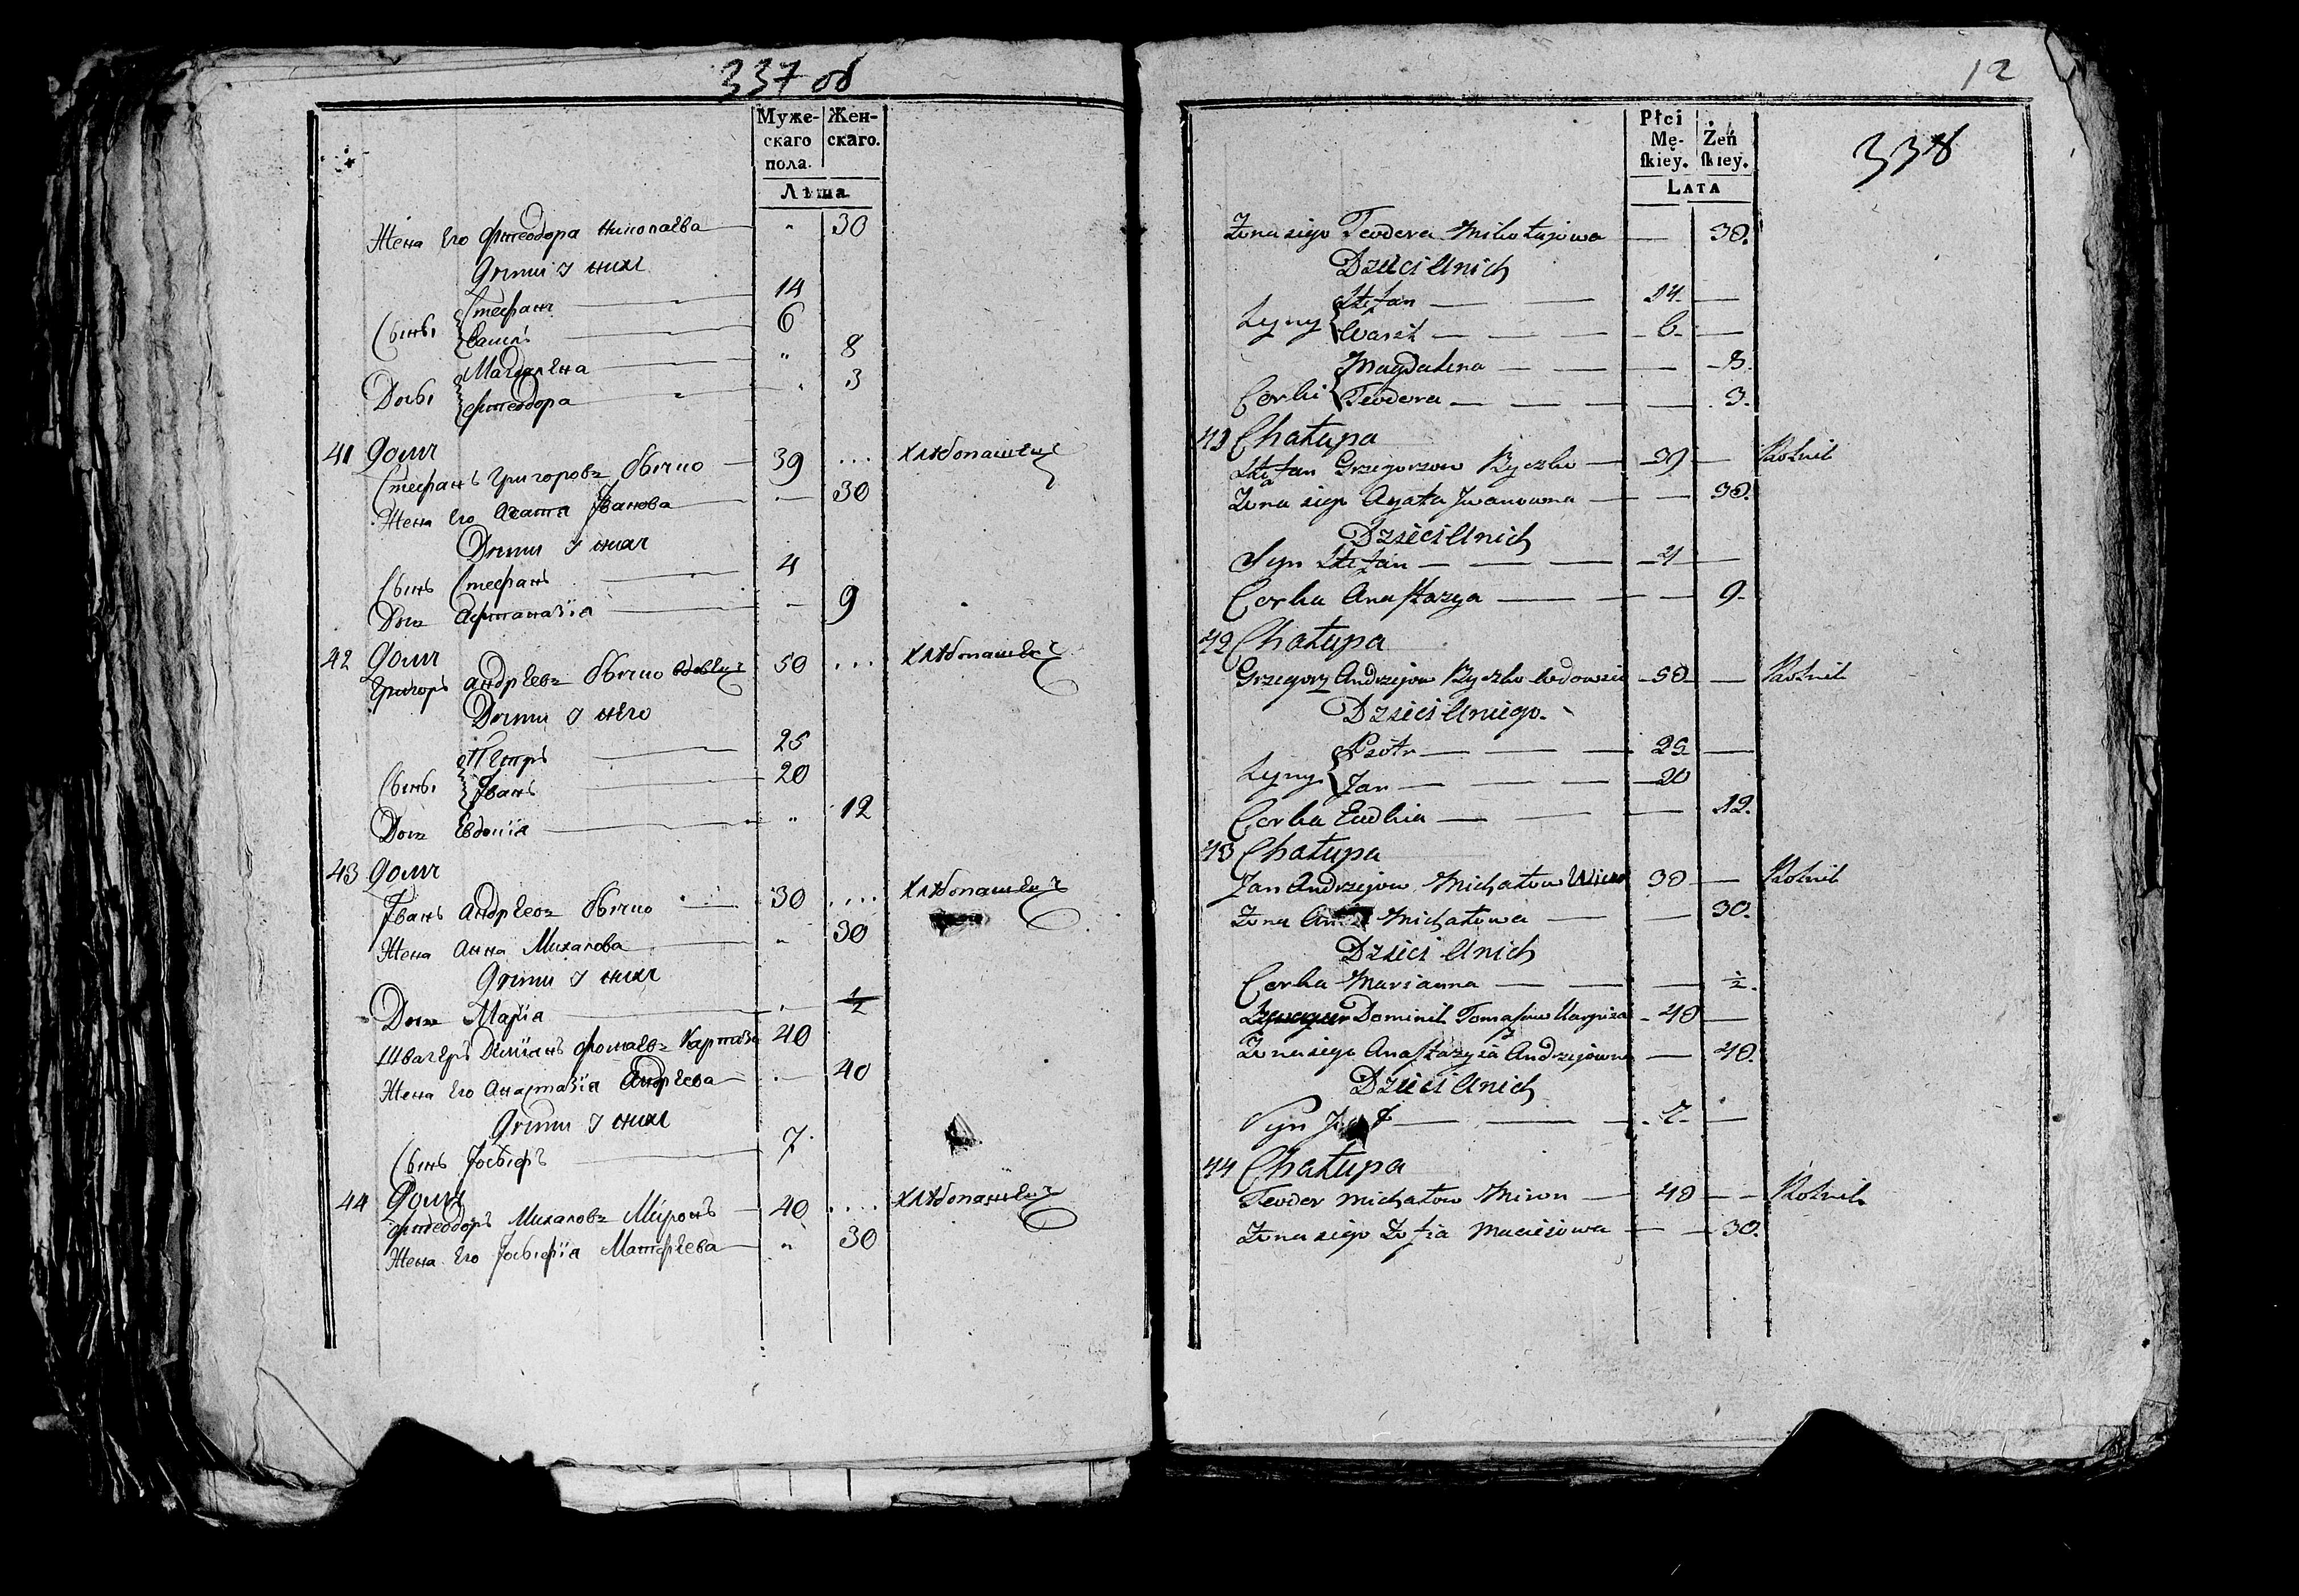 337 об
Муже-
скаго
пола.
Жен-
скаго.
Лѣта
Жена Его Фтеодора Николаева 30
Дѣти У нихъ
Сыны Стефанъ 14
Василь 6
Магдалена 8
Дочь Фтеодора 3
41 Домъ
Стефанъ Григоровъ Бычко 39 .... Хлѣбопашецъ
Жена Его Агата Іванова 30
Дѣти У нихъ
Сынъ Стефанъ 4
Дочь 9
42 Домъ
Григоръ Андрѣевъ Бычко вдовецъ 50 ... Хлѣбопашецъ
Дѣти У него
Петръ 25
Сыны Іванъ 20
Дочь Евдокія 12
43 Домъ
Іванъ Андрѣевъ Бычко 30 .... Хлѣбопашецъ
Жена Анна Михалова 30
Дѣти У нихъ
Дочь Марія 1/2
Швагеръ Фомаевъ 40
Жена Его Анастазія Андрѣева 40
Дѣти У нихъ
Сынъ Іосыфъ 7
44 Домъ
Фтеодоръ Михаловъ Миронъ 40 .... Хлѣбопашецъ
Жена Его Іосыфія Матфѣева 30
12
338
Płci
Mę-
skiey.
Żeń
skiey.
LATA
Żona jego Teodora Mikołajowa 30.
Dzieci U nich
Stefan 14
Syny Wasil 6
Magdalena 8.
Corki Teodora 3.
41 Chałupa
Stefan Grzegorzow Byczko 39 Rolnik
Żona jego Agata Iwanowna 30.
Dzieci U nich
Syn Stefan 4
Corka Anastazya 9
42 Chałupa
Grzegorz Andrzejow Byczko wdowiec 50 Rolnik
Dzieci U niego.
Piotr 25
Syny Jan 20
Corka Eudkia 12.
43 Chałupa
Jan Andrzejow Michałow 30 Rolnik
Żona Michałowa 30.
Dzieci U nich
Corka Marianna 1/2.
Dominik Tomaszow 40
Żona jego Anastazyia Andrzejowna 40.
Dzieci U nich
Syn 7
44 Chałupa
Teodor Michałow Miron 40 Rolnik
Żona jego Zofia Maciejowa 30.